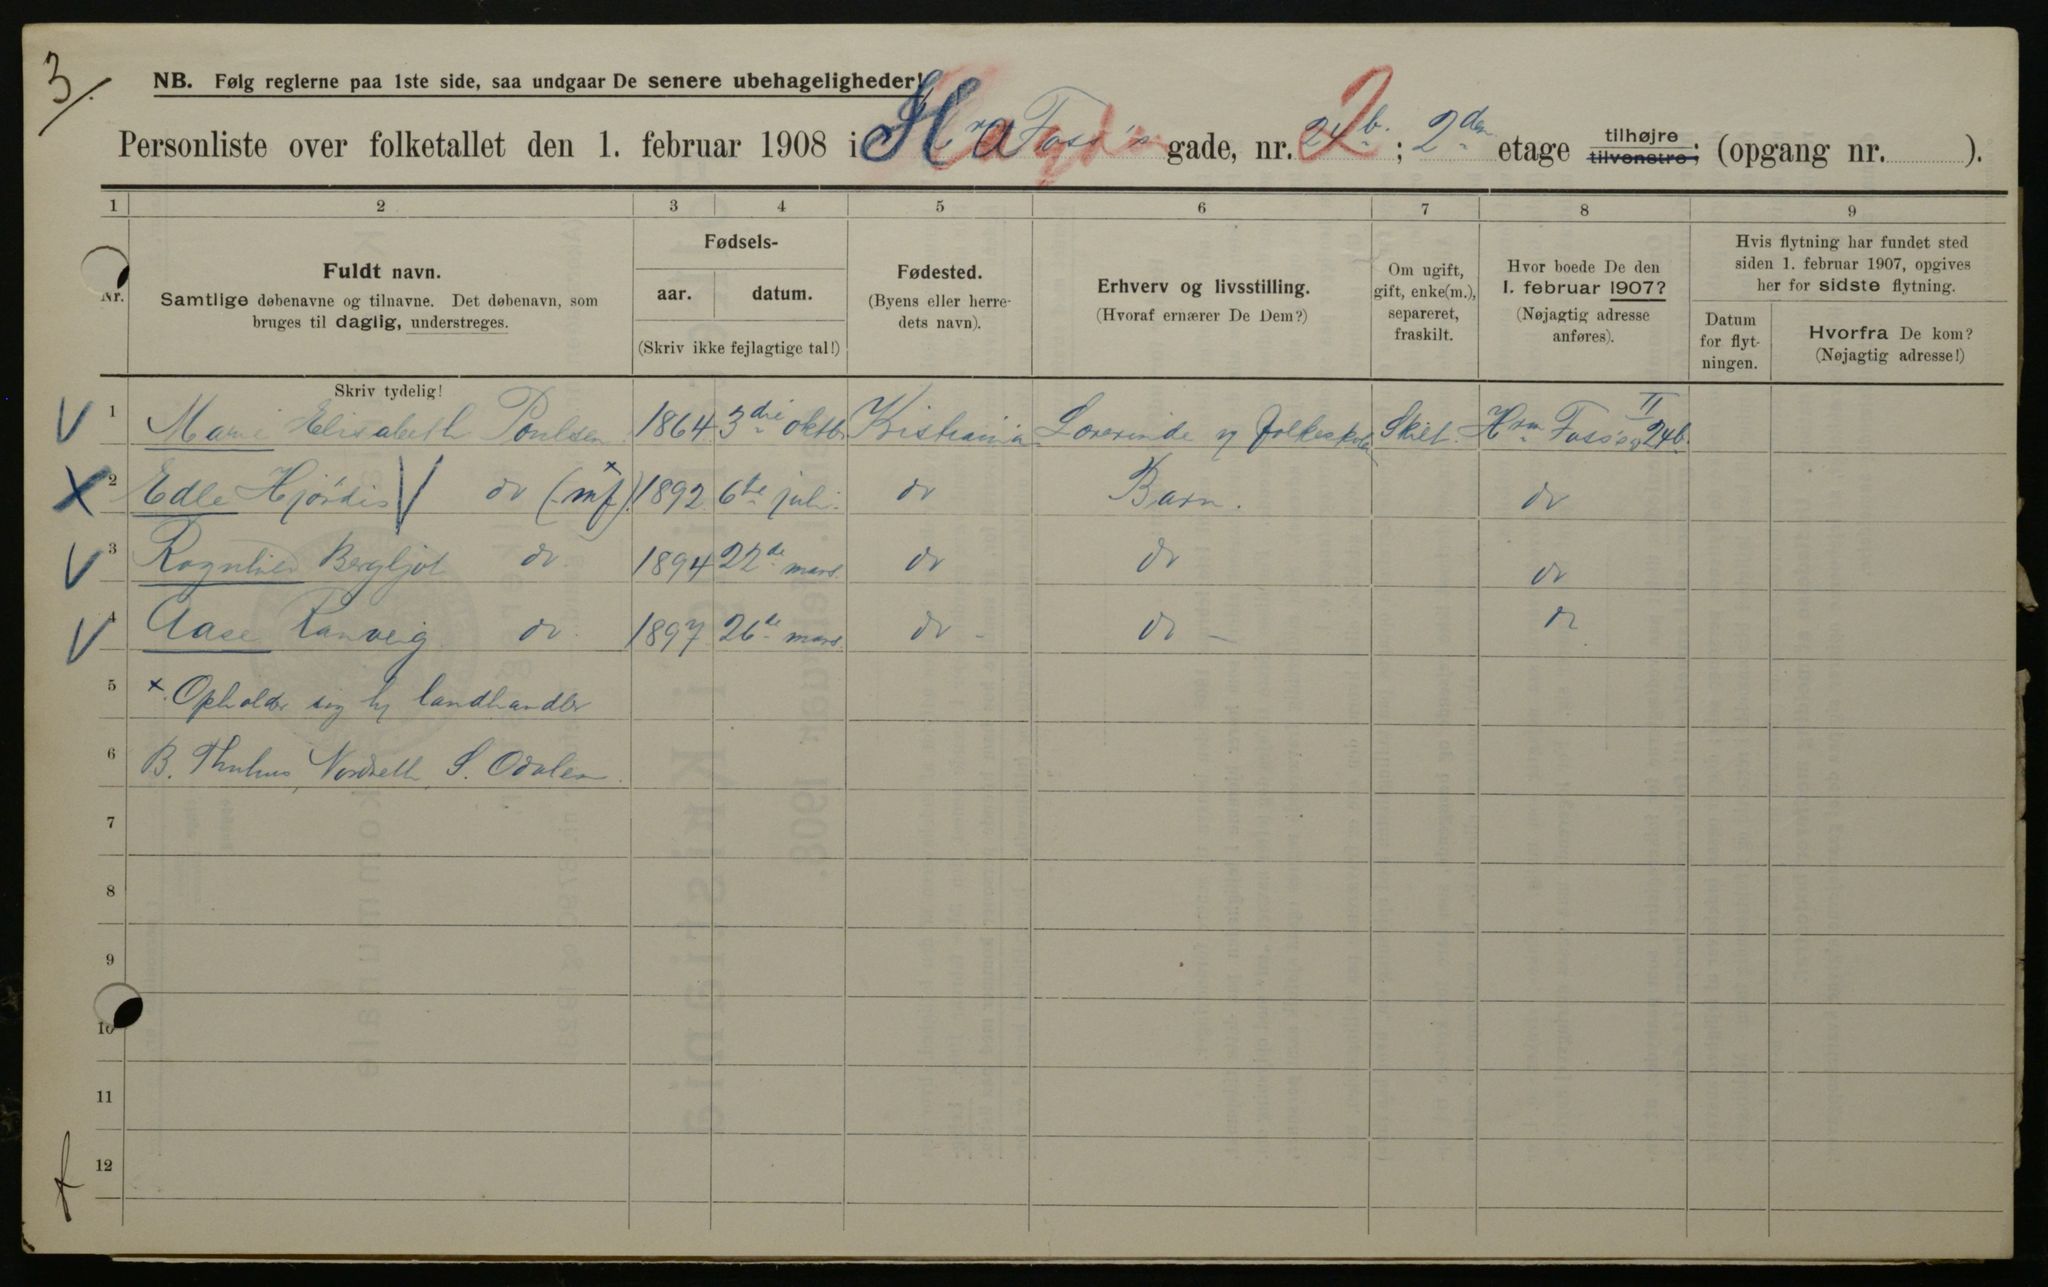 3/.
NB. Følg reglerne paa 1ste side, saa undgaar De senere ubehageligheder!
Personliste over folketallet den 1. februar 1908 i Hrm Foss's gade, nr. 24b. 2; 2den etage tilhøjre tilvenstre; (opgang nr. ).
1 2 3 4 5 6 7 8 9
Nr.
Fuldt navn.
Samtlige døbenavne og tilnavne. Det døbenavn, som
bruges til daglig, understreges.
Fødsels-
aar. datum.
(Skriv ikke fejlagtige tal!)
Fødested.
(Byens eller herre-
dets navn).
Erhverv og livsstilling.
(Hvoraf ernærer De Dem?)
Om ugift,
gift, enke(m.),
separeret,
fraskilt.
Hvor boede De den
1. februar 1907?
(Nøjagtig adresse
anføres).
Hvis flytning har fundet sted
siden 1. februar 1907, opgives
her for sidste flytning.
Datum
for flyt-
ningen.
Hvorfra De kom?
(Nøjagtig adresse!)
Skriv tydelig!
V 1 Marie Elisabeth Poulsen 1864 3die oktbr Kristiania Lærerinde v folkeskolen Skilt Hrm Foss'sg 24b. II
X 2 Edle Hjørdis V do (mf) x 1892 6te juli do Barn. do
V 3 Ragnhild Bergljot do 1894 22de mars do do do
V 4 Aase Ranveig do 1897 26de mars do - do - do
5 x. Opholder sig h/ landhandler
6 B. Thuhus, Nordseth, S. Odalen.
7
8
9
10
11
12